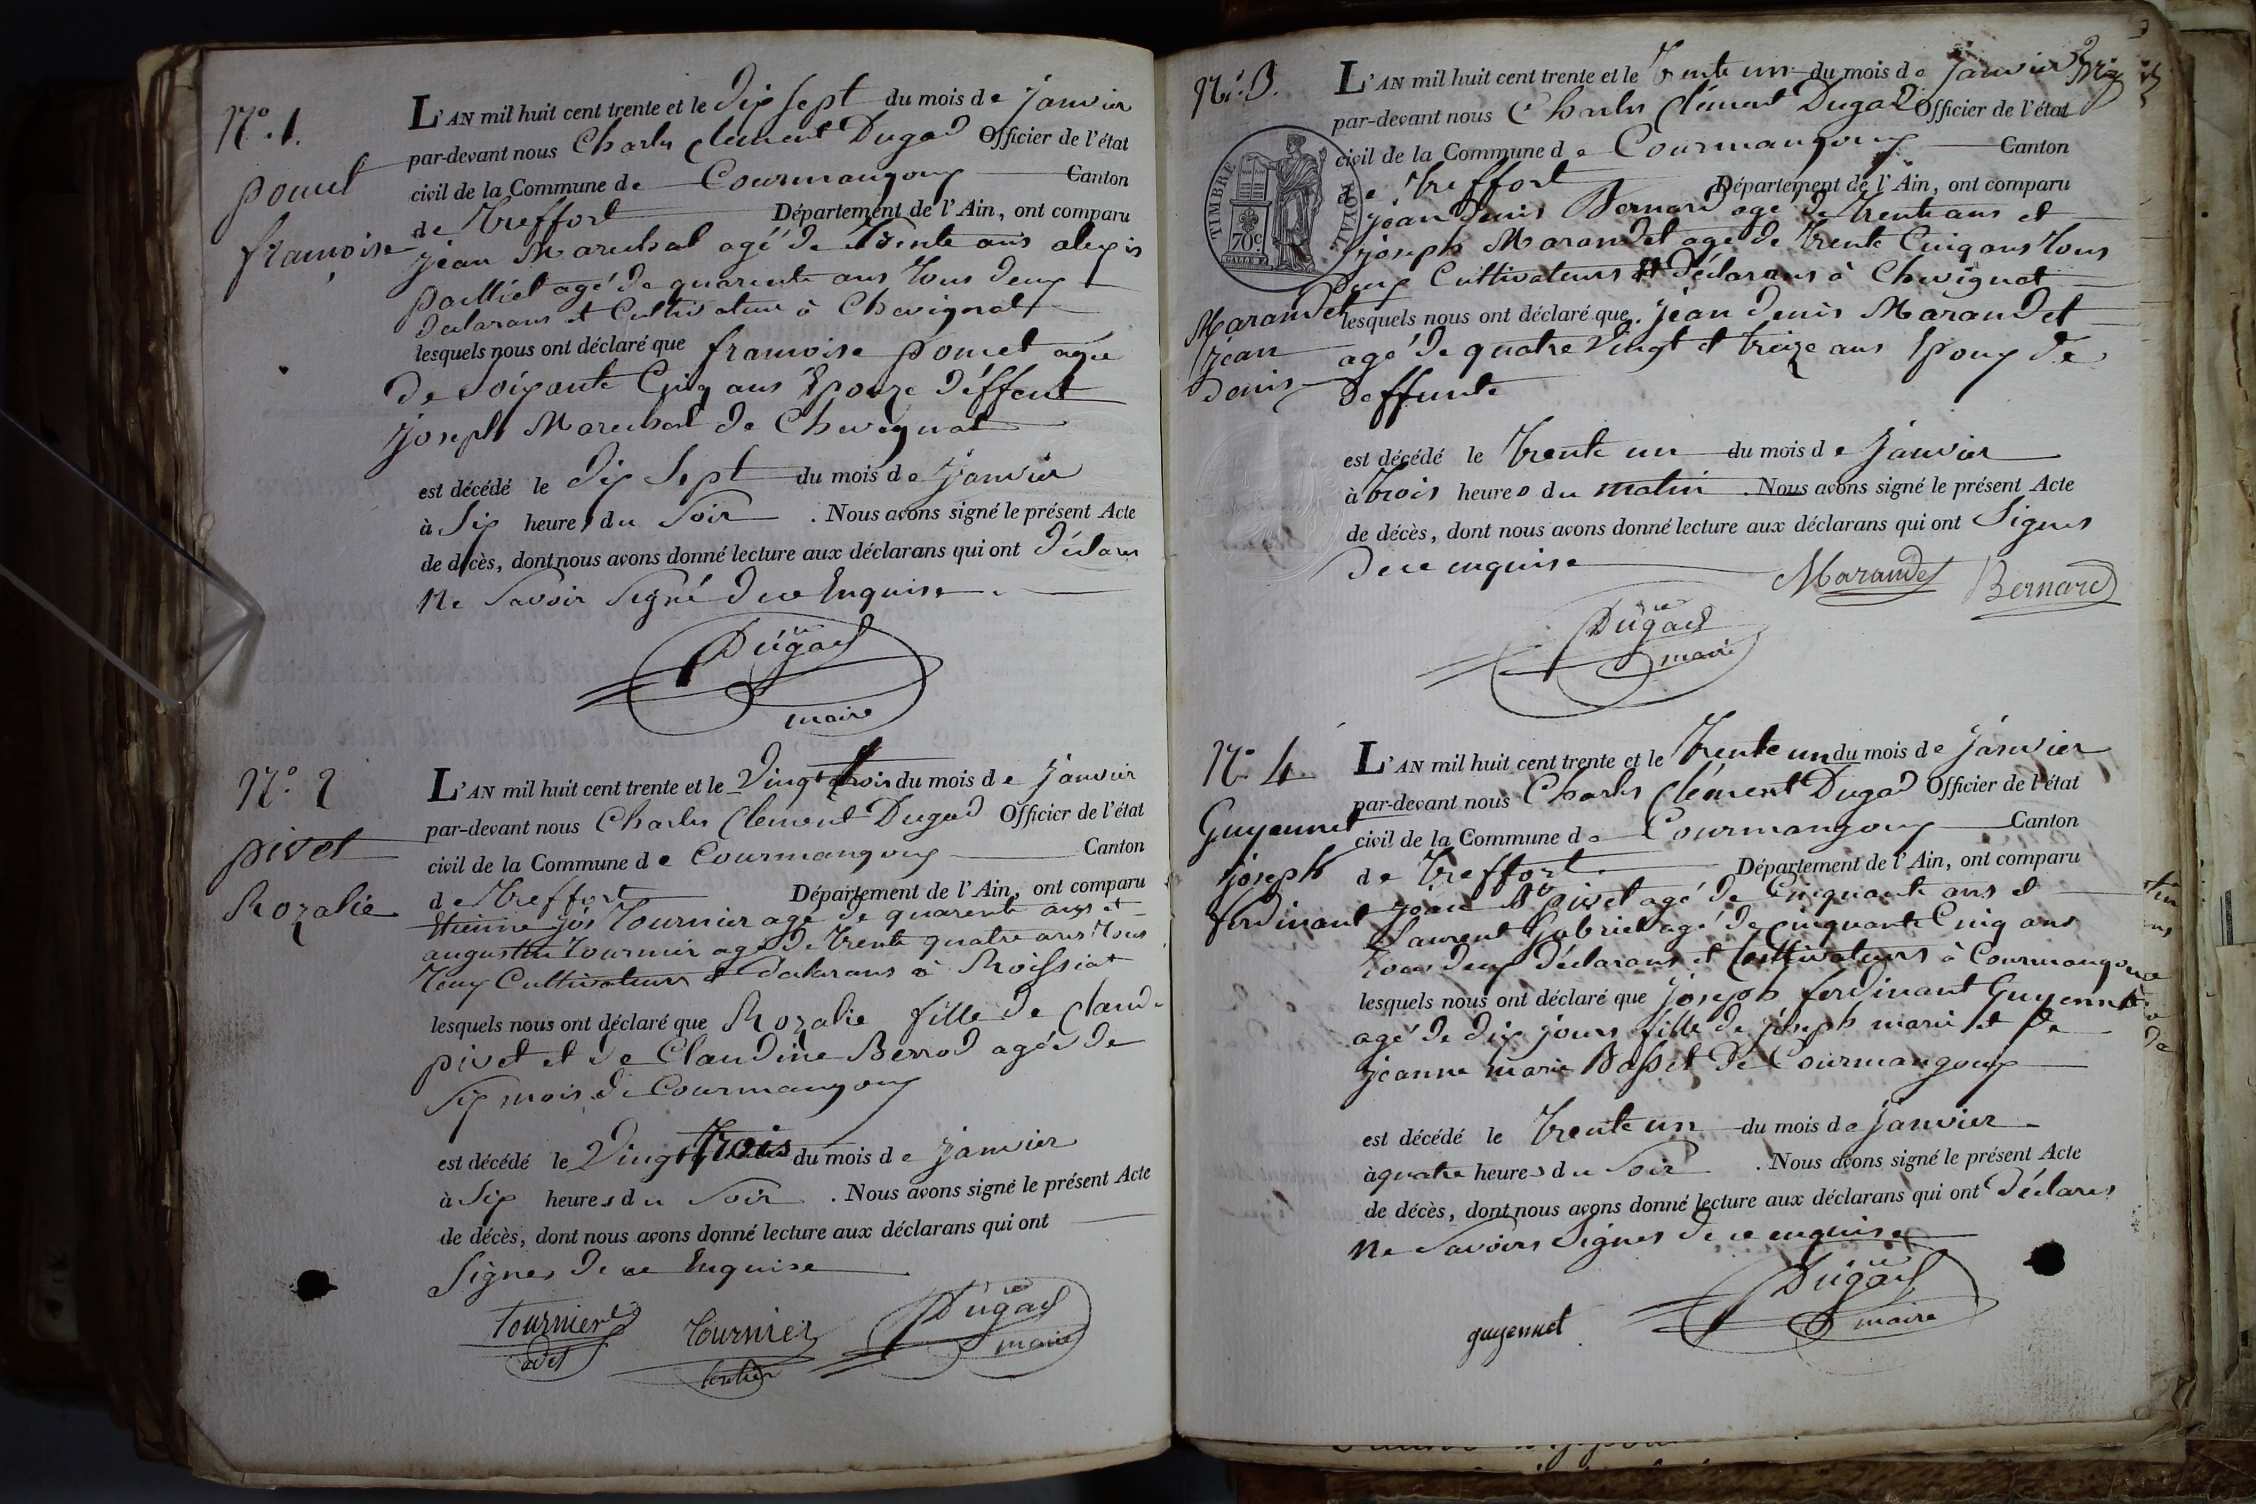 N.º 1.
pomet
françoise
L'AN mil huit cent trente et le dix sept du mois de janvier
par-devant nous Charles Clement Dugad Officier de l'état
civil de la Commune de Courmangoux Canton
de Treffort Département de l'Ain, ont comparu
jean Marechal agé de Trente ans alexis
paillet agé de quarente ans Tous deux
declarans et Cultivateur à Chevignat
lesquels nous ont déclaré que framoise pomet agée
de Soixante Cinq ans Epouze déffeut
joseph Marechal de Chevignat
est décédé le dix Sept du mois de janvier
à Six heures du Soir . Nous avons signé le présent Acte
de décès, dont nous avons donné lecture aux déclarans qui ont déclares
Ne Savoir Signé de ce Enquise
Dugad
maire
N.º 2
pivet
Rozalie
L'AN mil huit cent trente et le Vingt trois du mois de janvier
par-devant nous Charles Clement Dugad Officier de l'état
civil de la Commune de Courmangoux Canton
de Treffort Département de l'Ain, ont comparu
Etienne jos Tournier age de quarente ans et
augustin Tournier age de Trente quatre ans Tous
deux Cultivateurs et declarans à Roissiat
lesquels nous ont déclaré que Rozalie fille de claude
pivet et de Claudine Berrod agée de
Six mois de Courmangoux
est décédé le Vingt Trois du mois de janvier
à Six heures du Soir . Nous avons signé le présent Acte
de décès, dont nous avons donné lecture aux déclarans qui ont
Signes de ce Enquise
Tournier Tournier Dugad
maire
N.º 3.
TIMBRE ROYAL
70c
Marandet
jean
denis
L'AN mil huit cent trente et le Trente un du mois de janvier
par-devant nous Charles Clément Dugad Officier de l'état
civil de la Commune de Courmangoux Canton
de Treffort Département de l'Ain, ont comparu
jean denis Bernard agé de Trente ans et
joseph Marandet agé de Trente Cinq ans Tous
deux Cultivateurs et déclarans à Chevignat
lesquels nous ont déclaré que jean denis Marandet
agé de quatre Vingt et treize ans Epoux de
deffunte
est décédé le Trente un du mois de janvier
à Trois heures du matin . Nous avons signé le présent Acte
de décès, dont nous avons donné lecture aux déclarans qui ont Signes
de ce enquise
Marandet Bernard
Dugad
maire
N.º 4.
Guyennet
joseph
ferdinant
L'AN mil huit cent trente et le Trente un du mois de janvier
par-devant nous Charles Clément Dugad Officier de l'état
civil de la Commune de Courmangoux Canton
de Treffort Département de l'Ain, ont comparu
jean pivet agé de Cinquante ans et
Laurent Gabriel agé de cinquante Cinq ans
Tous deux déclarans et Cultivateurs à Courmangoux
lesquels nous ont déclaré que joseph ferdinant Guyennet
agé de dix jours fille de joseph marie et de
jeanne marie Basset de Courmangoux
est décédé le Trente un du mois de janvier
à quatre heures du Soir . Nous avons signé le présent Acte
de décès, dont nous avons donné lecture aux déclarans qui ont déclares
Ne Savoirs Signes de ce enquise
guyennet Dugad
maire